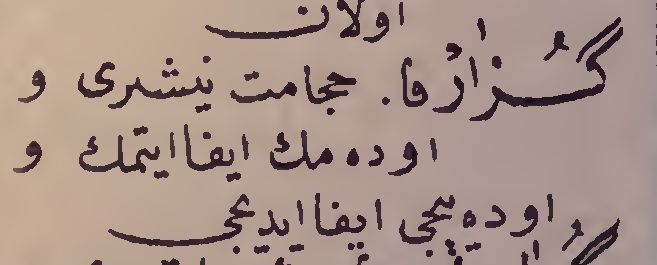 اولان
گُزارْدَا. حجامت نیشتری و
اوده‌مك ایفا ایتمك و
اوده‌ییجی ایفا ایدیجی